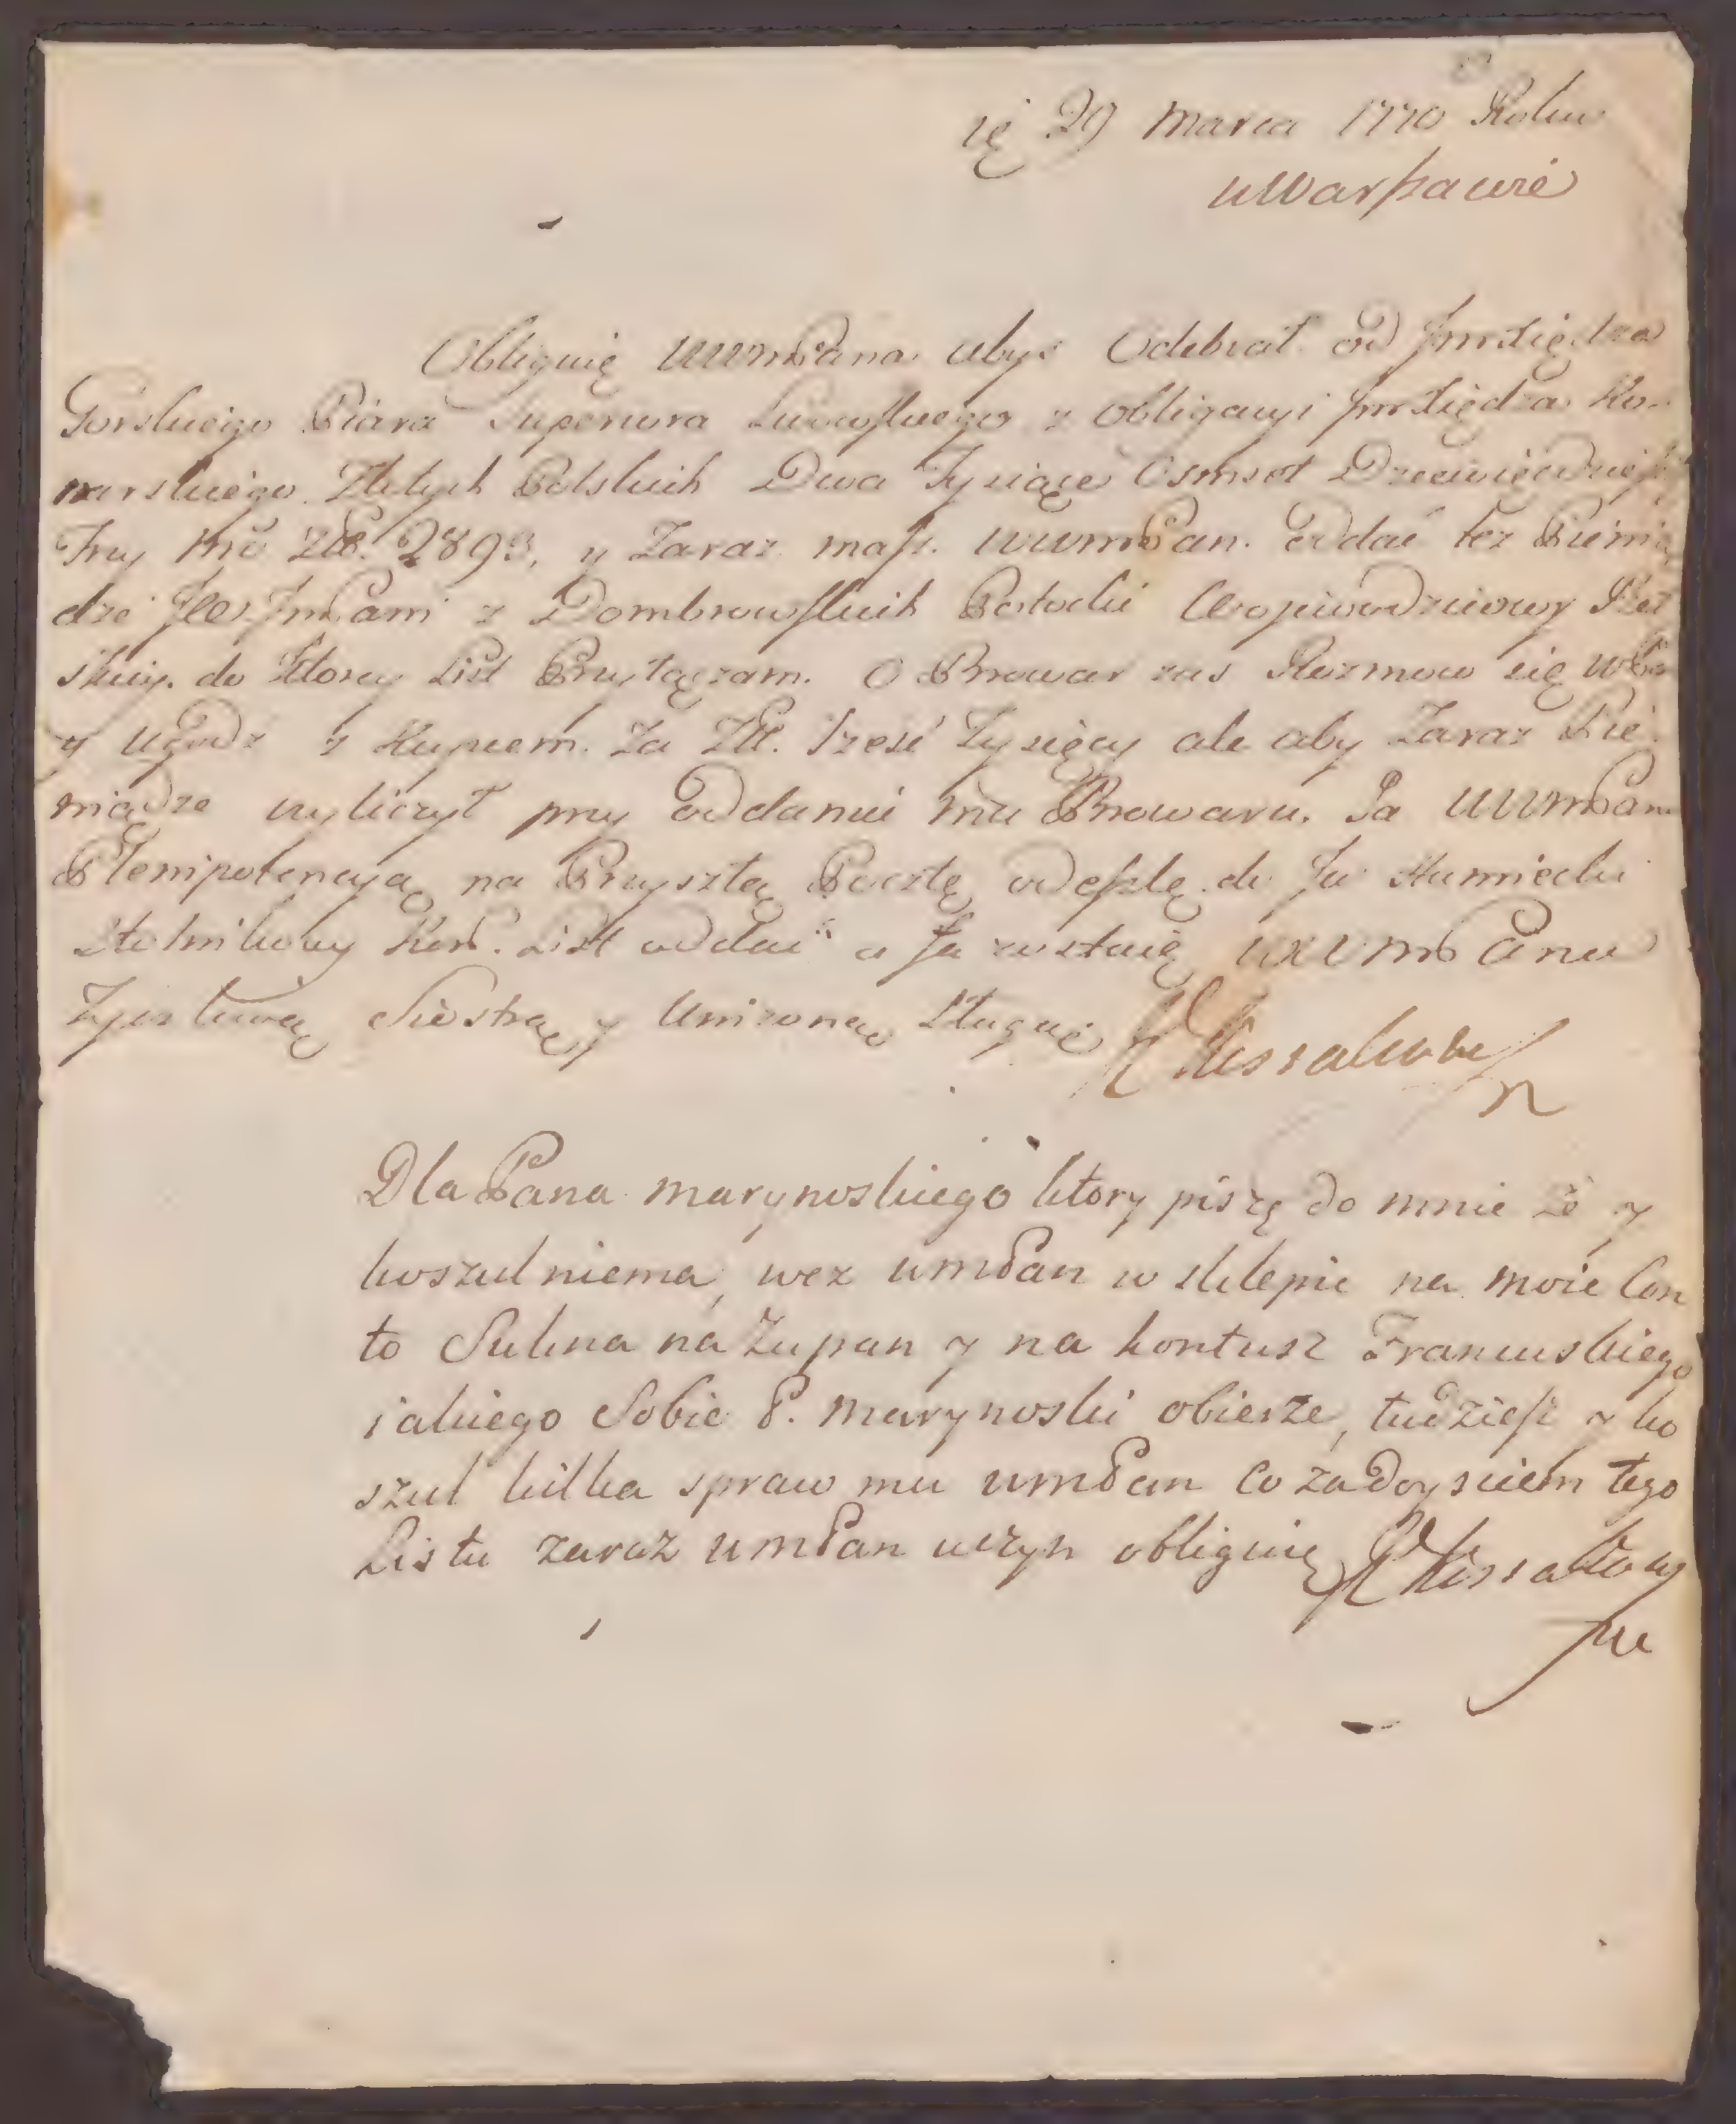 29 Marca 1770 Roku
w Warszawie
Obliguię WWmPana abyś Odebrał od Jmxiędza
Gorskiego Piara Superiora Lwowskiego z obligacyi Jmxiędza Ko-
narskiego Złotych Polskich Dwa Tysiące Osmset Dziewięcdziesiąt
Trzy 2893, y Zaraz masz WWmPan oddać też Pienią
dze JmPani z Dombrowskich Potocki Woiewodziowy
do ktorey List Przyłączam. O Browar zas Rozmow się
y ugodz z Kupcem Za Zł. Szesć Tysięcy ale aby Zaraz Pie
niądze wyliczył przy oddaniu mu Browaru. Ja WWmPanu
Plenipotencyą na Przyszłą Pocztę odeszlę do Humiecki
Stolnikowy Kor. List oddać a Ja zostaię WWmPana
Życzliwą Siostrą y Unizoną Sługą Kossakowska
Dla Pana Marynoskiego ktory piszę do mnie że y
koszul niema, wez WmPan w sklepie na moie Con
to Sukna na Żupan y na kontusz Francuskiego
iakiego Sobie P. Marynoski obierze, tudziesz y ko
szul kilka spraw mu WmPan Co za doysciem tego
Listu zaraz WmPan uczyn obliguię Kossakows
ka